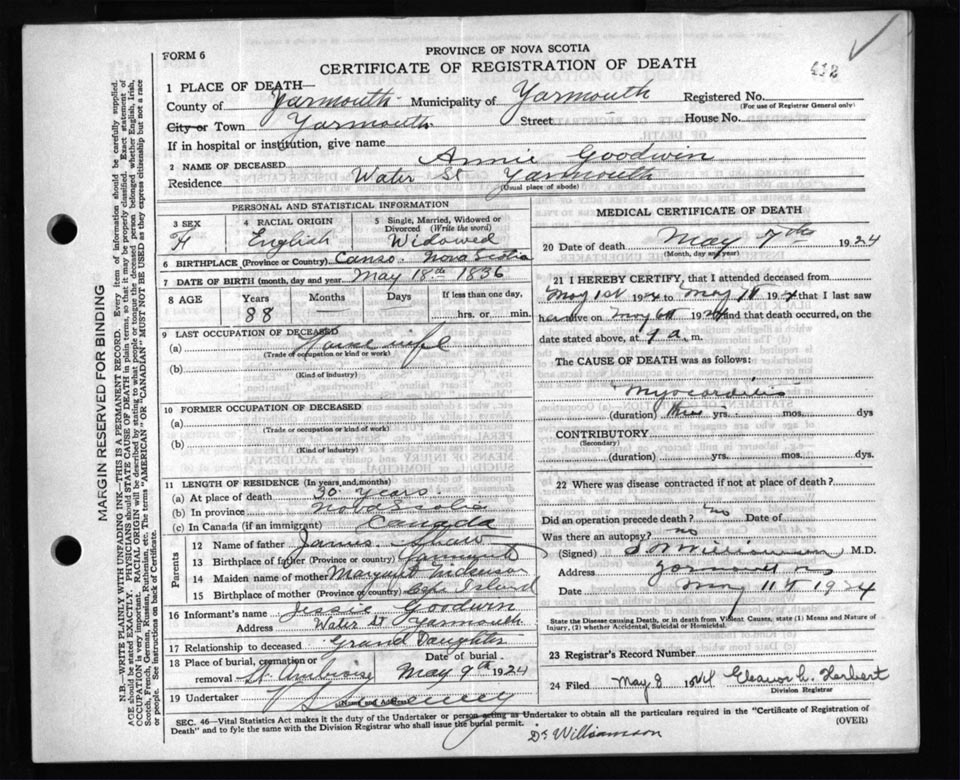 FORM 6
PROVINCE OF NOVA SCOTIA
CERTIFICATE OF REGISTRATION OF DEATH
1 PLACE OF DEATH—
County of Yarmouth Municipality of Yarmouth Registered No.
(For use of Registrar General only)
City or Town Yarmouth Street House No.
If in hospital or institution, give name
2 NAME OF DECEASED Annie Goodwin
Residence Water St Yarmouth
(Usual place of abode)
PERSONAL AND STATISTICAL INFORMATION
3 SEX 4 RACIAL ORIGIN 5 Single, Married, Widowed or Divorced (Write the word)
F English Widowed
6 BIRTHPLACE (Province or Country) Canso. Nova Scotia
7 DATE OF BIRTH (month, day and year) May 18th 1836
8 AGE Years Months Days If less than one day,
88 hrs. or min.
9 LAST OCCUPATION OF DECEASED
(a) House wife
(Trade or occupation or kind or work)
(b)
(Kind of industry)
10 FORMER OCCUPATION OF DECEASED
(a)
(Trade or occupation or kind or work)
(b)
(Kind of industry)
11 LENGTH OF RESIDENCE (In years, and months)
(a) At place of death 30 years.
(b) In province Nova Scotia
(c) In Canada (if an immigrant) Canada
Parents
12 Name of father James Shaw
13 Birthplace of father (Province or country) Yarmouth
14 Maiden name of mother Margaret
15 Birthplace of mother (Province or country) Cape Island
16 Informant's name Jessie Goodwin
Address Water St Yarmouth
17 Relationship to deceased Grand Daughter
18 Place of burial, cremation or removal St. Ambroise Date of burial May 9th 1924
19 Undertaker V S Sweeney
(Name and Address)
MEDICAL CERTIFICATE OF DEATH
20 Date of death May 7th 1924
(Month, day and year)
21 I HEREBY CERTIFY, that I attended deceased from
May 1st 1924 to May 7th 1924 that I last saw
her alive on May 6th 1924 and that death occurred, on the
date stated above, at a. m.
The CAUSE OF DEATH was as follows:
Myocarditis
(duration) three yrs. mos. dys
CONTRIBUTORY
(Secondary)
(duration) yrs. mos. dys.
22 Where was disease contracted if not at place of death?
Did an operation precede death? no Date of
Was there an autopsy? no
(Signed) Williamson M.D.
Address Yarmouth NS
Date May 11th 1924
State the Disease causing Death, or in death from Violent Causes, state (1) Means and Nature of Injury, (2) whether Accidental, Suicidal or Homicidal.
23 Registrar's Record Number
24 Filed May 8 1924 Eleanor C. Herbert
Division Registrar
SEC. 46—Vital Statistics Act makes it the duty of the Undertaker or person acting as Undertaker to obtain all the particulars required in the "Certificate of Registration of
Death" and to fyle the same with the Division Registrar who shall issue the burial permit. (OVER)
Dr Williamson
MARGIN RESERVED FOR BINDING
N.B.—WRITE PLAINLY WITH UNFADING INK—THIS IS A PERMANENT RECORD. Every item of information should be carefully supplied.
AGE should be stated EXACTLY. PHYSICIANS should STATE CAUSE OF DEATH in plain terms, so that it may be properly classified. Exact statement of
OCCUPATION is very important. RACIAL ORIGIN will be described by stating to what people or tongue the deceased person belonged whether English, Irish,
Scotch, French, German, Russian, Ruthenian, etc. The terms "AMERICAN" OR "CANADIAN" MUST NOT BE USED as they express citizenship but not a race
or people. See instructions on back of Certificate.